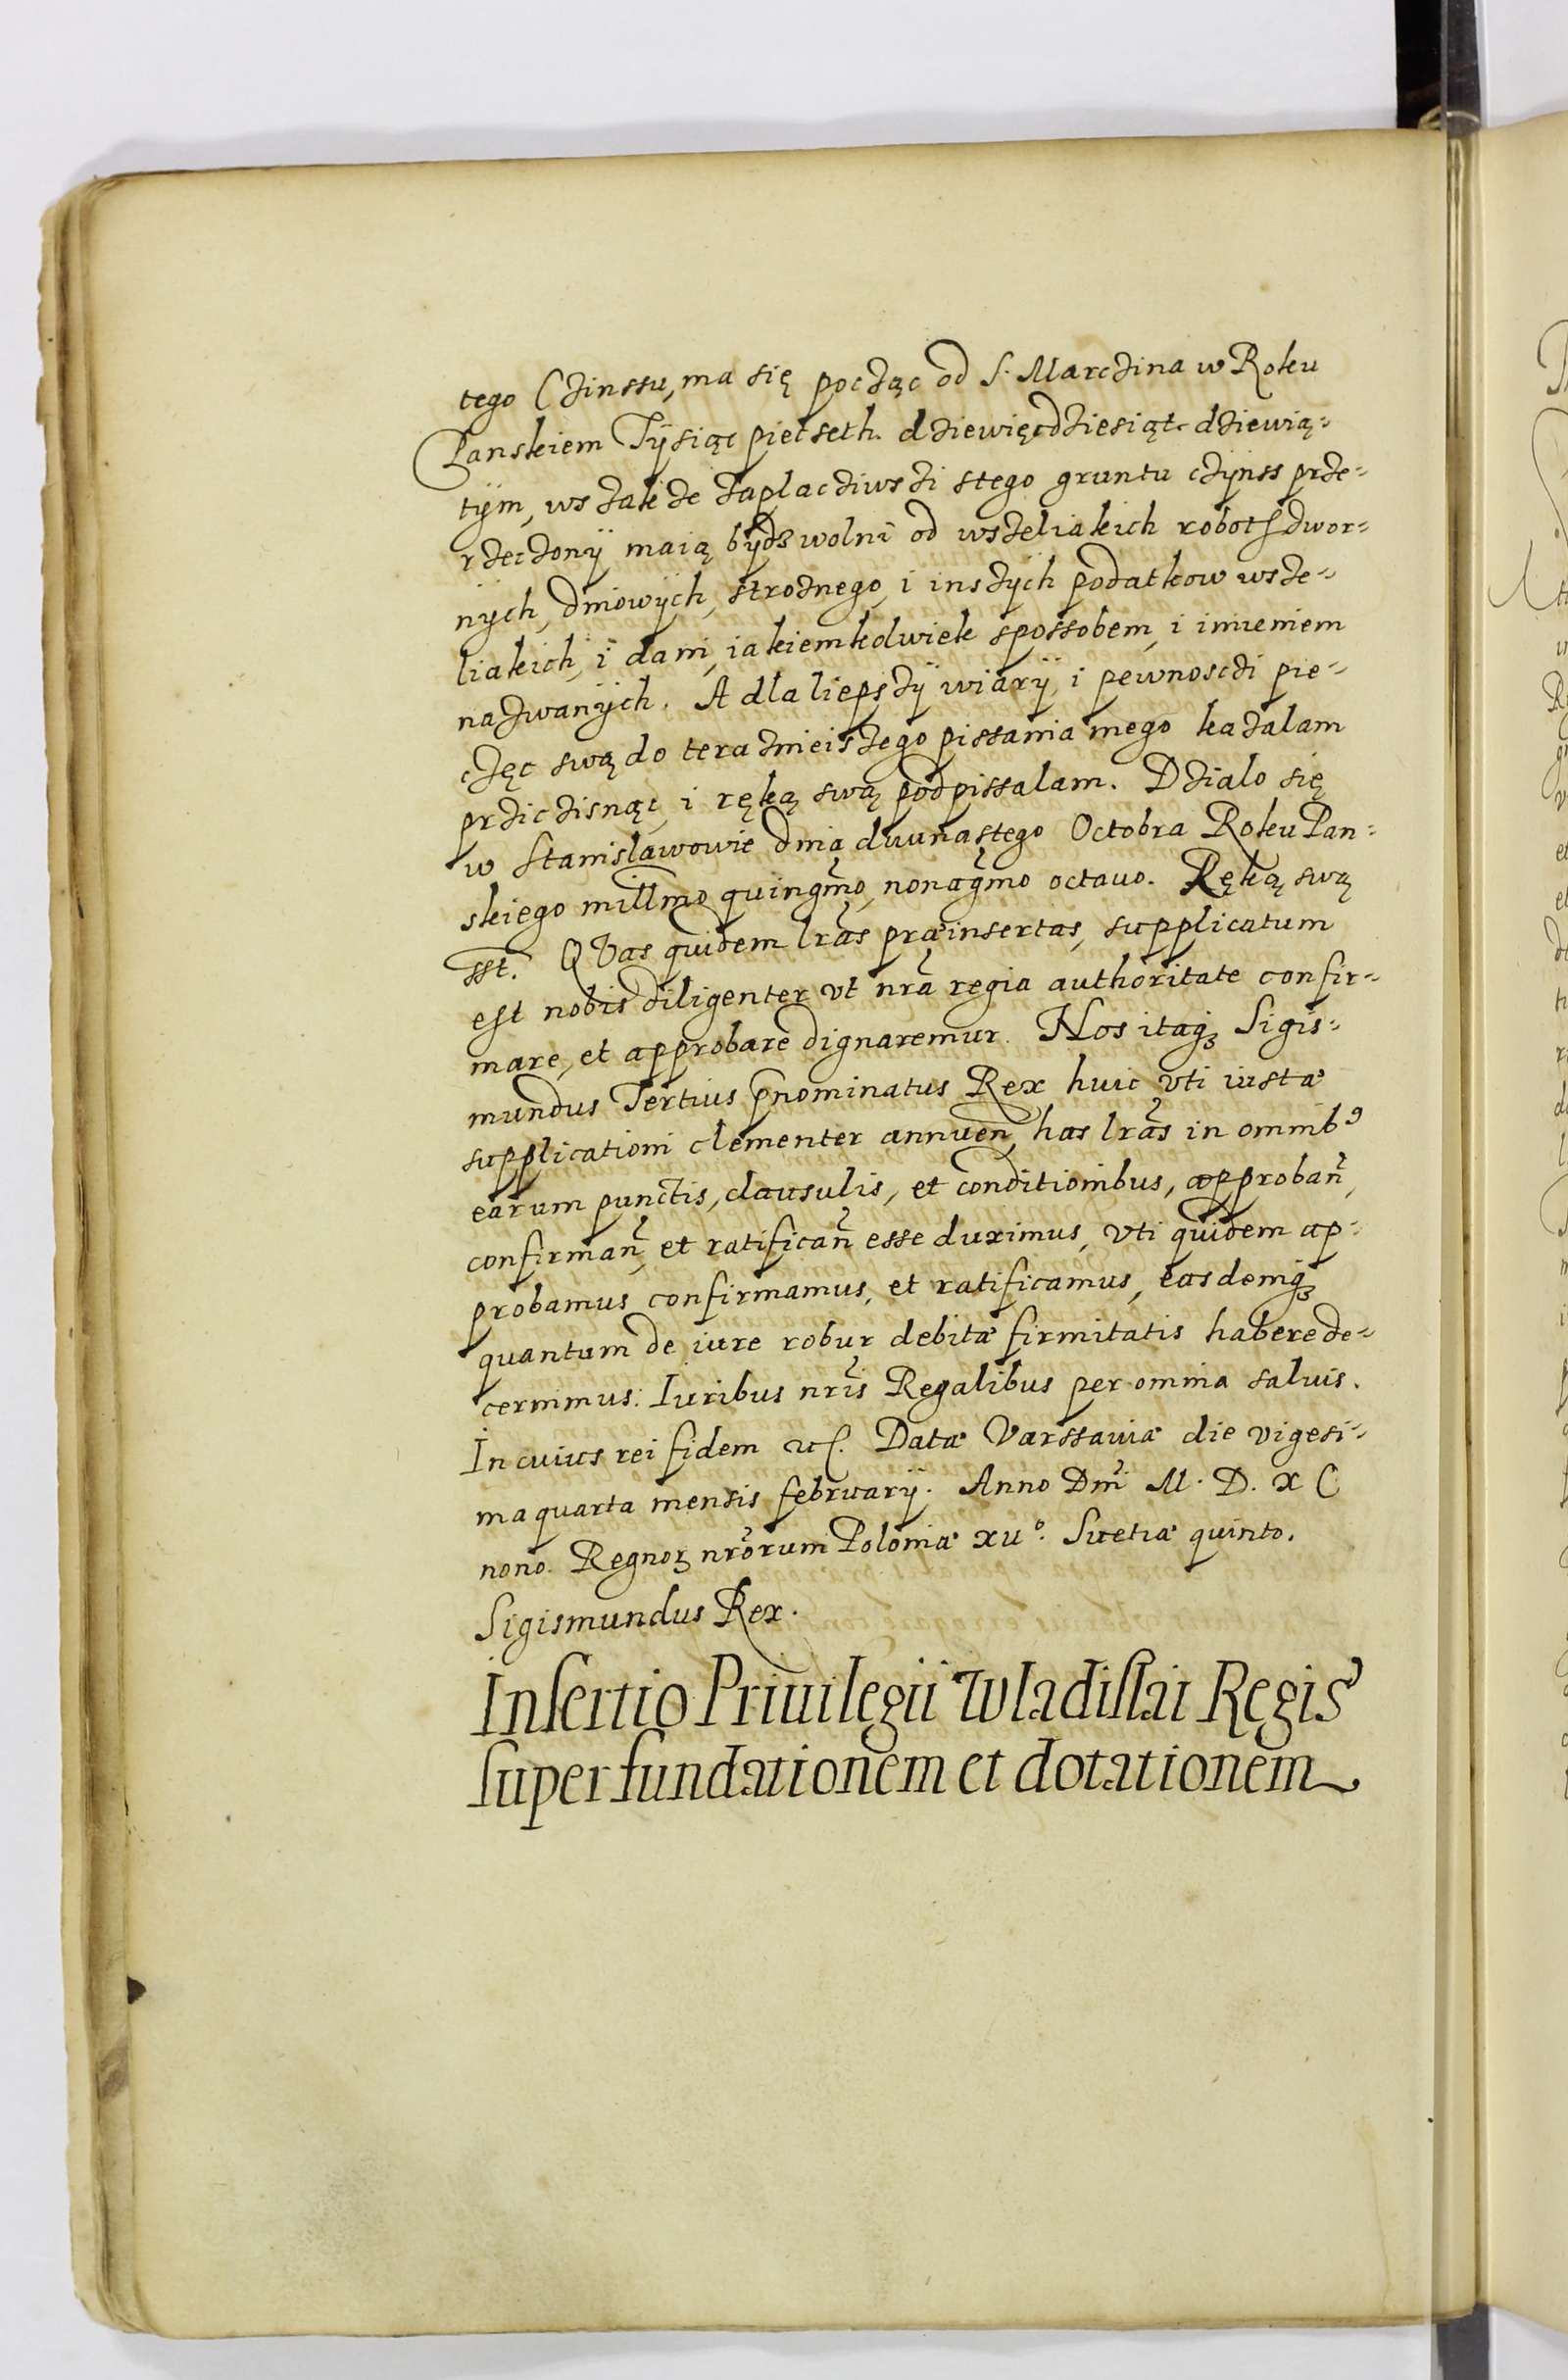 tego Czinssu, ma się począc od S. Marczina w Roku
Panskiem Tÿsiąc piecseth dziewięcdziesiąt dziewią-
tÿm, wszakże zaplacziwszi stego gruntu czÿnss prze-
rzeczonÿ maią bÿdz wolni od wszeliakich robot dwor-
nÿch, dniowÿch, stroznego, i inszÿch podatkow wsze-
liakich, i dani, iakiemkolwiek spossobem, i imieniem
nazwanÿch. A dla liepszÿ wiarÿ, i pewnosczi pie-
częc swą do teraznieiszego pissania mego kazalam
prziczisnąc, i ręką swą podpissalam. Dzialo się
w Stanislawowie dnia dwunastego Octobra Roku Pan-
skiego millmo quingmo, nonagmo octauo. Ręką swą
sst. QVas quidem lras præinsertas, supplicatum
est nobis diligenter vt nra regia authoritate confir-
mare, et approbare dignaremur. Nos itaqꝫ Sigis-
mundus Tertius pnominatus Rex huic vti iustæ
supplicationi clementer annuen, has lras in omnibꝰ
earum punctis, clausulis, et conditionibus, approban,
confirman, et ratifican esse duximus, vti quidem ap-
probamus confirmamus, et ratificamus, easdemqꝫ
quantum de iure robur debitæ firmitatis habere de-
cernimus: Iuribus nris Regalibus per omnia saluis.
In cuius rei fidem etc. Datæ Varssauiæ die vigesi-
ma quarta mensis februarÿ. Anno Dni M. D. X C
nono. Regnoꝝ nrorum Poloniæ xuº. Suetiæ quinto.
Sigismundus Rex.
Insertio Priuilegii Wladislai Regis
super fundationem et dotationem